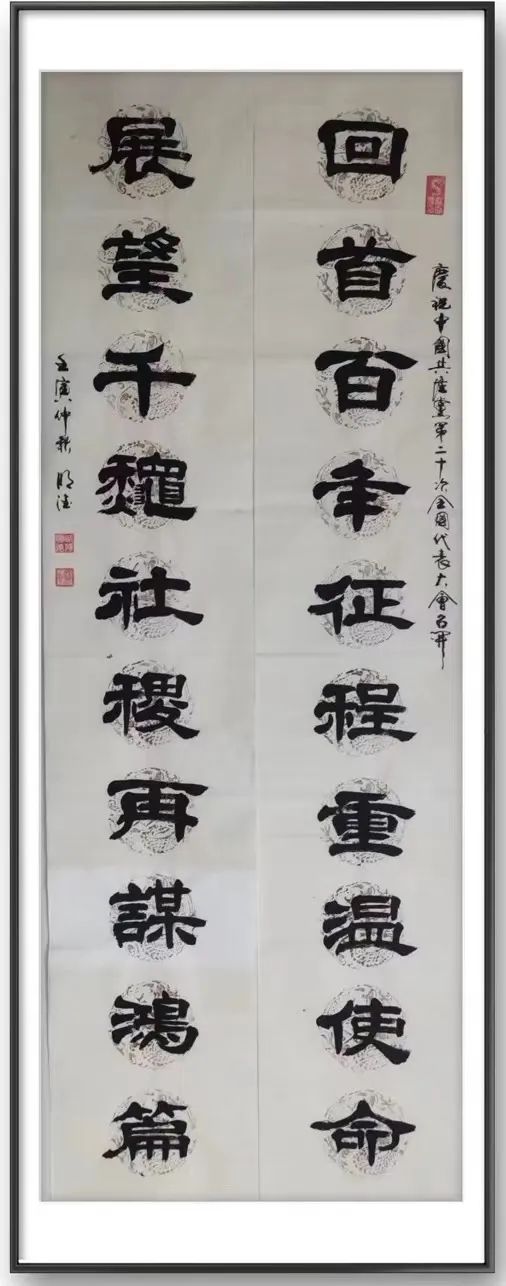 慶祝中國共產黨第二十次全國代表大會召開
回首百年征程重温使命
展望千龝社稷再謀鴻篇
壬寅仲秋